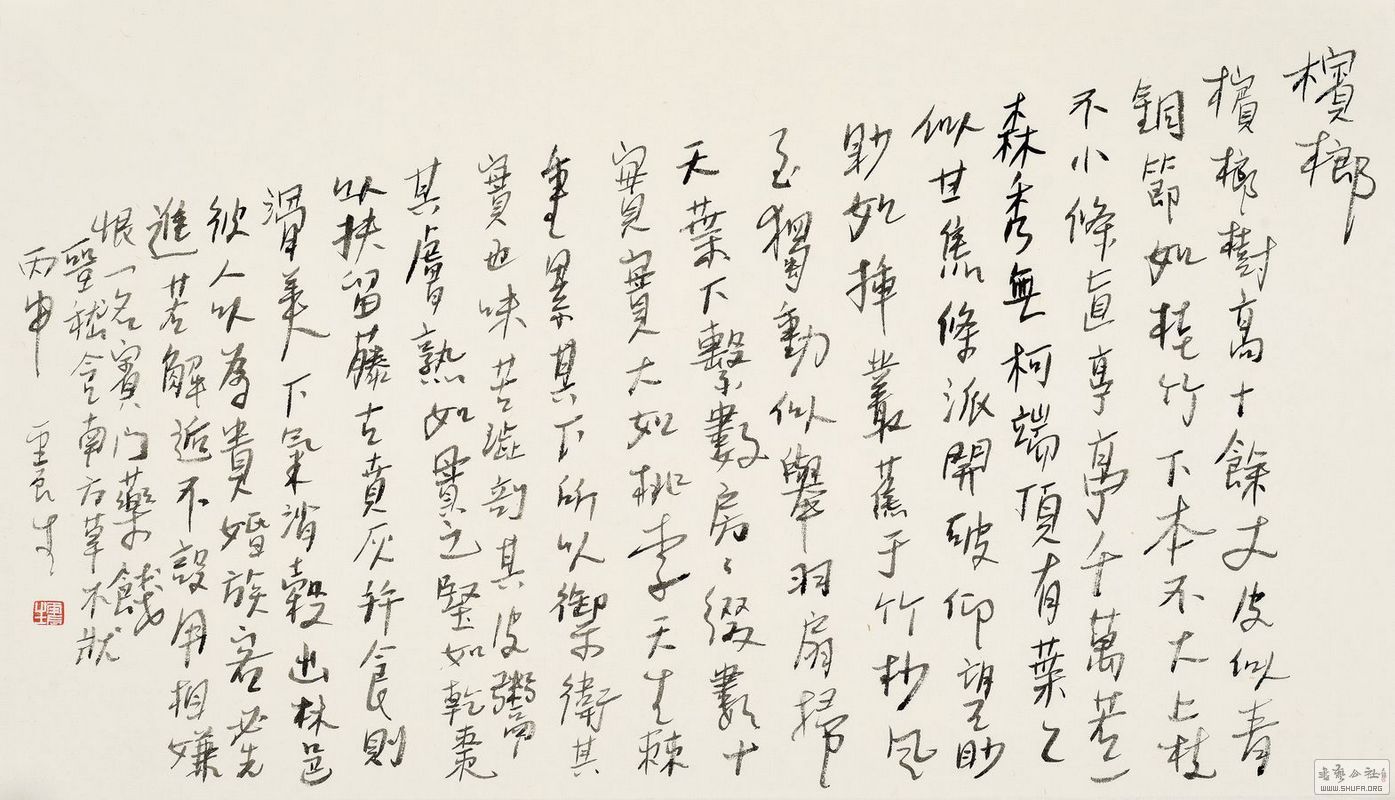 檳榔
檳榔樹高十餘丈皮似青
銅節如桂竹下本不大上枝
不小條直亭亭千萬若一
森秀無柯端頂有葉々
似甘蕉條派開破仰望眇
眇如插叢蕉于竹杪風
至獨動似舉羽扇掃
天葉下繫數房々綴數十
實實大如桃李天生棘
重累其下所以禦衛其
實也味苦澁剖其皮鬻
其膚熟如貫之堅如乾棗
以扶留藤古賁灰并食則
滑美人下氣消穀出林邑
彼人以為貴婚族客必先
進若解逅不設用相嫌
恨一名賓門藥餞
嵇含南方草木狀
丙申
書藝公社
WWW.SHUFA.ORG